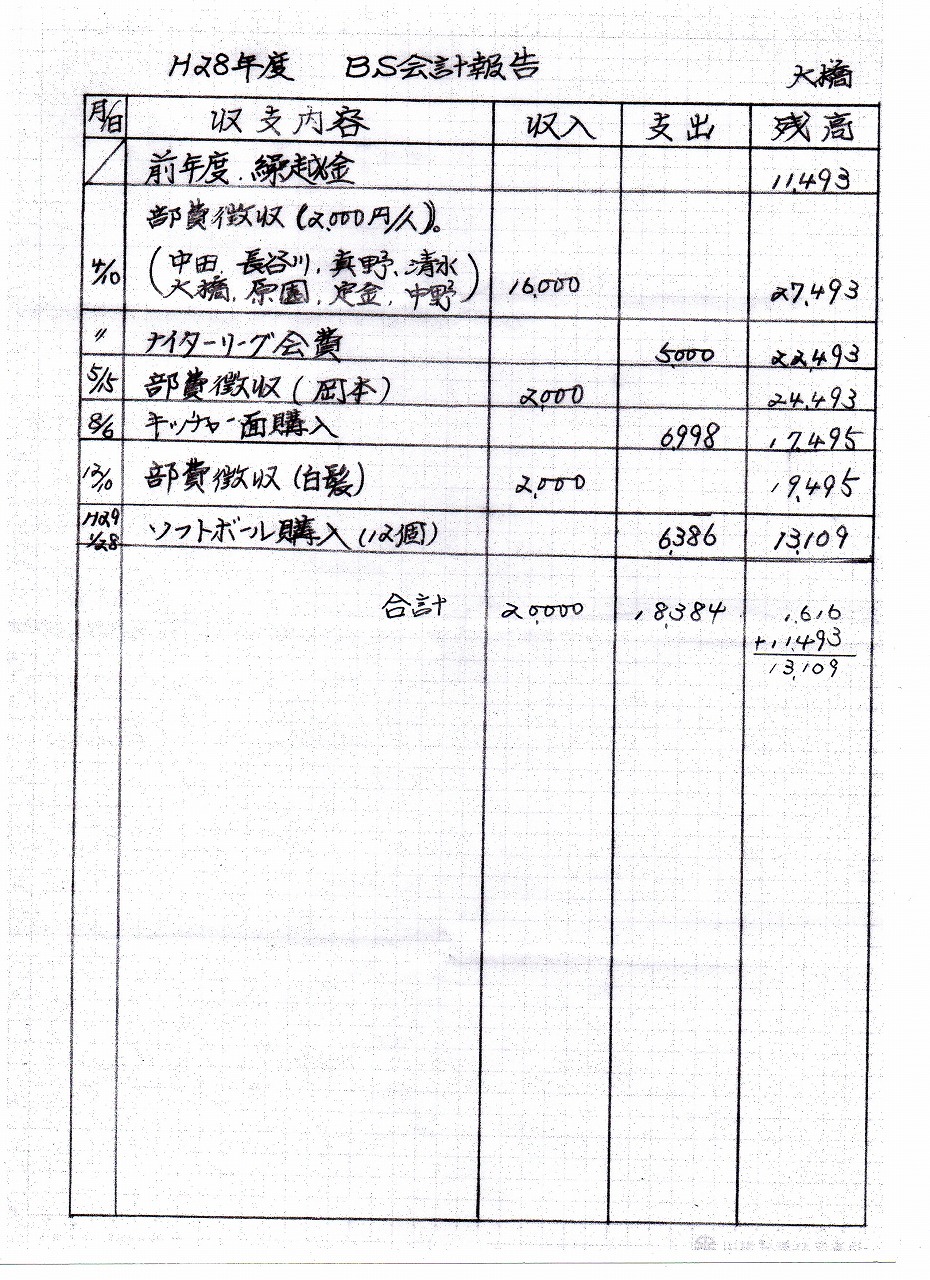 H28年度 BS会計報告
大橋
月/日 収支内容 収入 支出 残高
前年度.繰越金 11,493
部費徴収(2,000円/人)。
4/10 (中田, 長谷川, 真野, 清水
大橋, 原園, 定金, 中野) 16,000 27,493
〃 ナイターリーグ会費 5,000 22,493
5/15 部費徴収(岡本) 2,000 24,493
8/6 キャッチャー面購入 6,998 17,495
12/10 部費徴収(白髪) 2,000 19,495
H29
1/28 ソフトボール購入(12個) 6,386 13,109
合計 20,000 18,384 1,616
+11,493
13,109